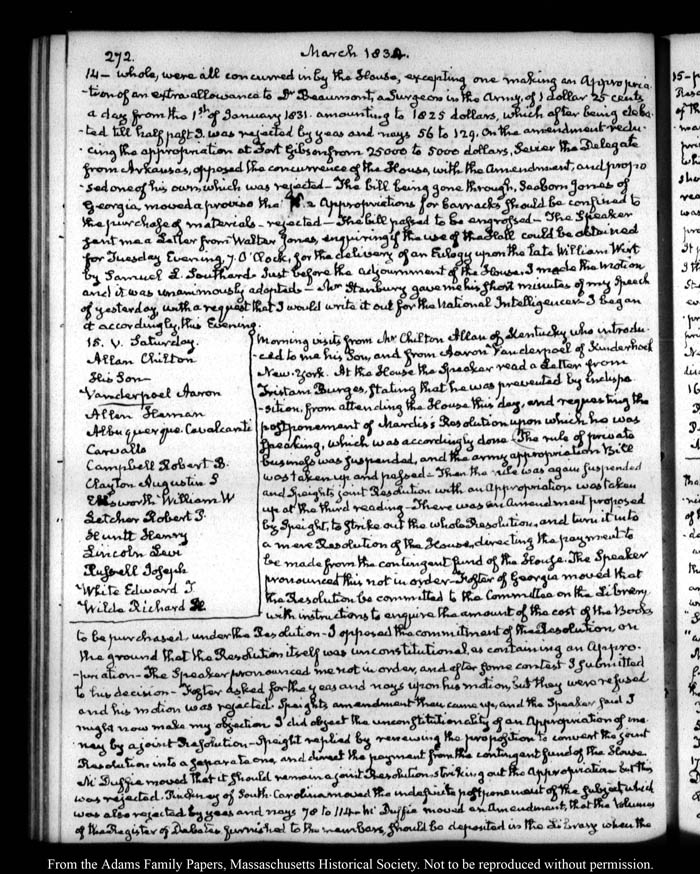 272.
March 1834.
14 - whole, were all concurred in by the House, excepting one making an Appropria-
-tion of an extra allowance to Dr Beaumont, a Surgeon in the Army, of 1 dollar 25 cents
a day from the 1st of January 1831. amounting to 1825 dollars, which after being deba-
-ted till half past 3. was rejected by yeas and nays 56 to 129. On the amendment redu-
-cing the appropriation at Fort Gibson from 25000 to 5000 dollars, Sevier the Delegate
from Arkansas, opposed the concurrence of the House, with the Amendment, and propo
sed one of his own, which was rejected - The bill being gone through, Seaborn Jones of
Georgia, moved a proviso the 2 Appropriations for barracks should be confined to
the purchase of materials - rejected - The bill passed to be engrossed - The Speaker
sent me a Letter from Walter Jones, enquiring if the use of the Hall could be obtained
for Tuesday Evening, 7. O'Clock, for the delivery of an Eulogy upon the late William Wirt
by Samuel L. Southard - Just before the adjournment of the House. I made the motion
and it was unanimously adopted - Mr Stanbury gave me his short minutes of my Speech
of yesterday, with a request that I would write it out for the National Intelligencer - I began
it accordingly, this Evening.
15. V. Saturday.
Allan Chilton
His Son
Vanderpoel Aaron
Allen Heman
Albuquerque. Cavalcanti
Carvallo
Campbell Robert B.
Clayton Augustin S
Ellsworth William W
Letcher Robert P.
Huntt Henry
Lincoln Levi
Russell Joseph
White Edward D.
Wilde Richard H
Morning visits from Mr Chilton Allan of Kentucky who introdu-
-ced to me his Son, and from Aaron Vanderpoel of Kinderhook
New-York. At the House the Speaker read a Letter from
Tristam Burges, stating that he was prevented by indispo
-sition, from attending the House this day, and requesting the
postponement of Mardis's Resolution upon which he was
speaking, which was accordingly done. The rule of private
business was suspended, and the army appropriation Bill
was taken up and passed - Then the rule was again suspended
and Speights joint Resolution with an Appropriation was taken
up at the third reading - There was an Amendment proposed
by Speight, to strike out the whole Resolution, and turn it into
a mere Resolution of the House, directing the payment to
be made from the contingent fund of the House. The Speaker
pronounced this not in order - Foster of Georgia moved that
the Resolution be committed to the Committee on the Library
with instructions to enquire the amount of the cost of the Books
to be purchased, under the Resolution - I opposed the commitment of the Resolution, on
the ground that the Resolution itself was unconstitutional, as containing an Appro-
-priation - The Speaker pronounced me not in order, and after some contest I submitted
to his decision - Foster asked for the yeas and nays upon his motion, but they were refused
and his motion was rejected. Speights amendment then came up, and the Speaker said I
might now make my objection. I did object the unconstitutionality of an Appropriation of mo-
ney by a joint Resolution - Speight replied by renewing the proposition to convert the joint
Resolution into a separate one, and direct the payment from the contingent fund of the House
McDuffie moved that it should remain a joint Resolution striking out the Appropriation but this
was rejected. Pinckney of South-Carolina moved the indefinite postponement of the subject which
was also rejected by yeas and nays 78 to 114 - McDuffie moved an Amendment, that the Volumes
of the Register of Debates furnished to the members, should be deposited in the Library when the
From the Adams Family Papers, Massachusetts Historical Society. Not to be reproduced without permission.